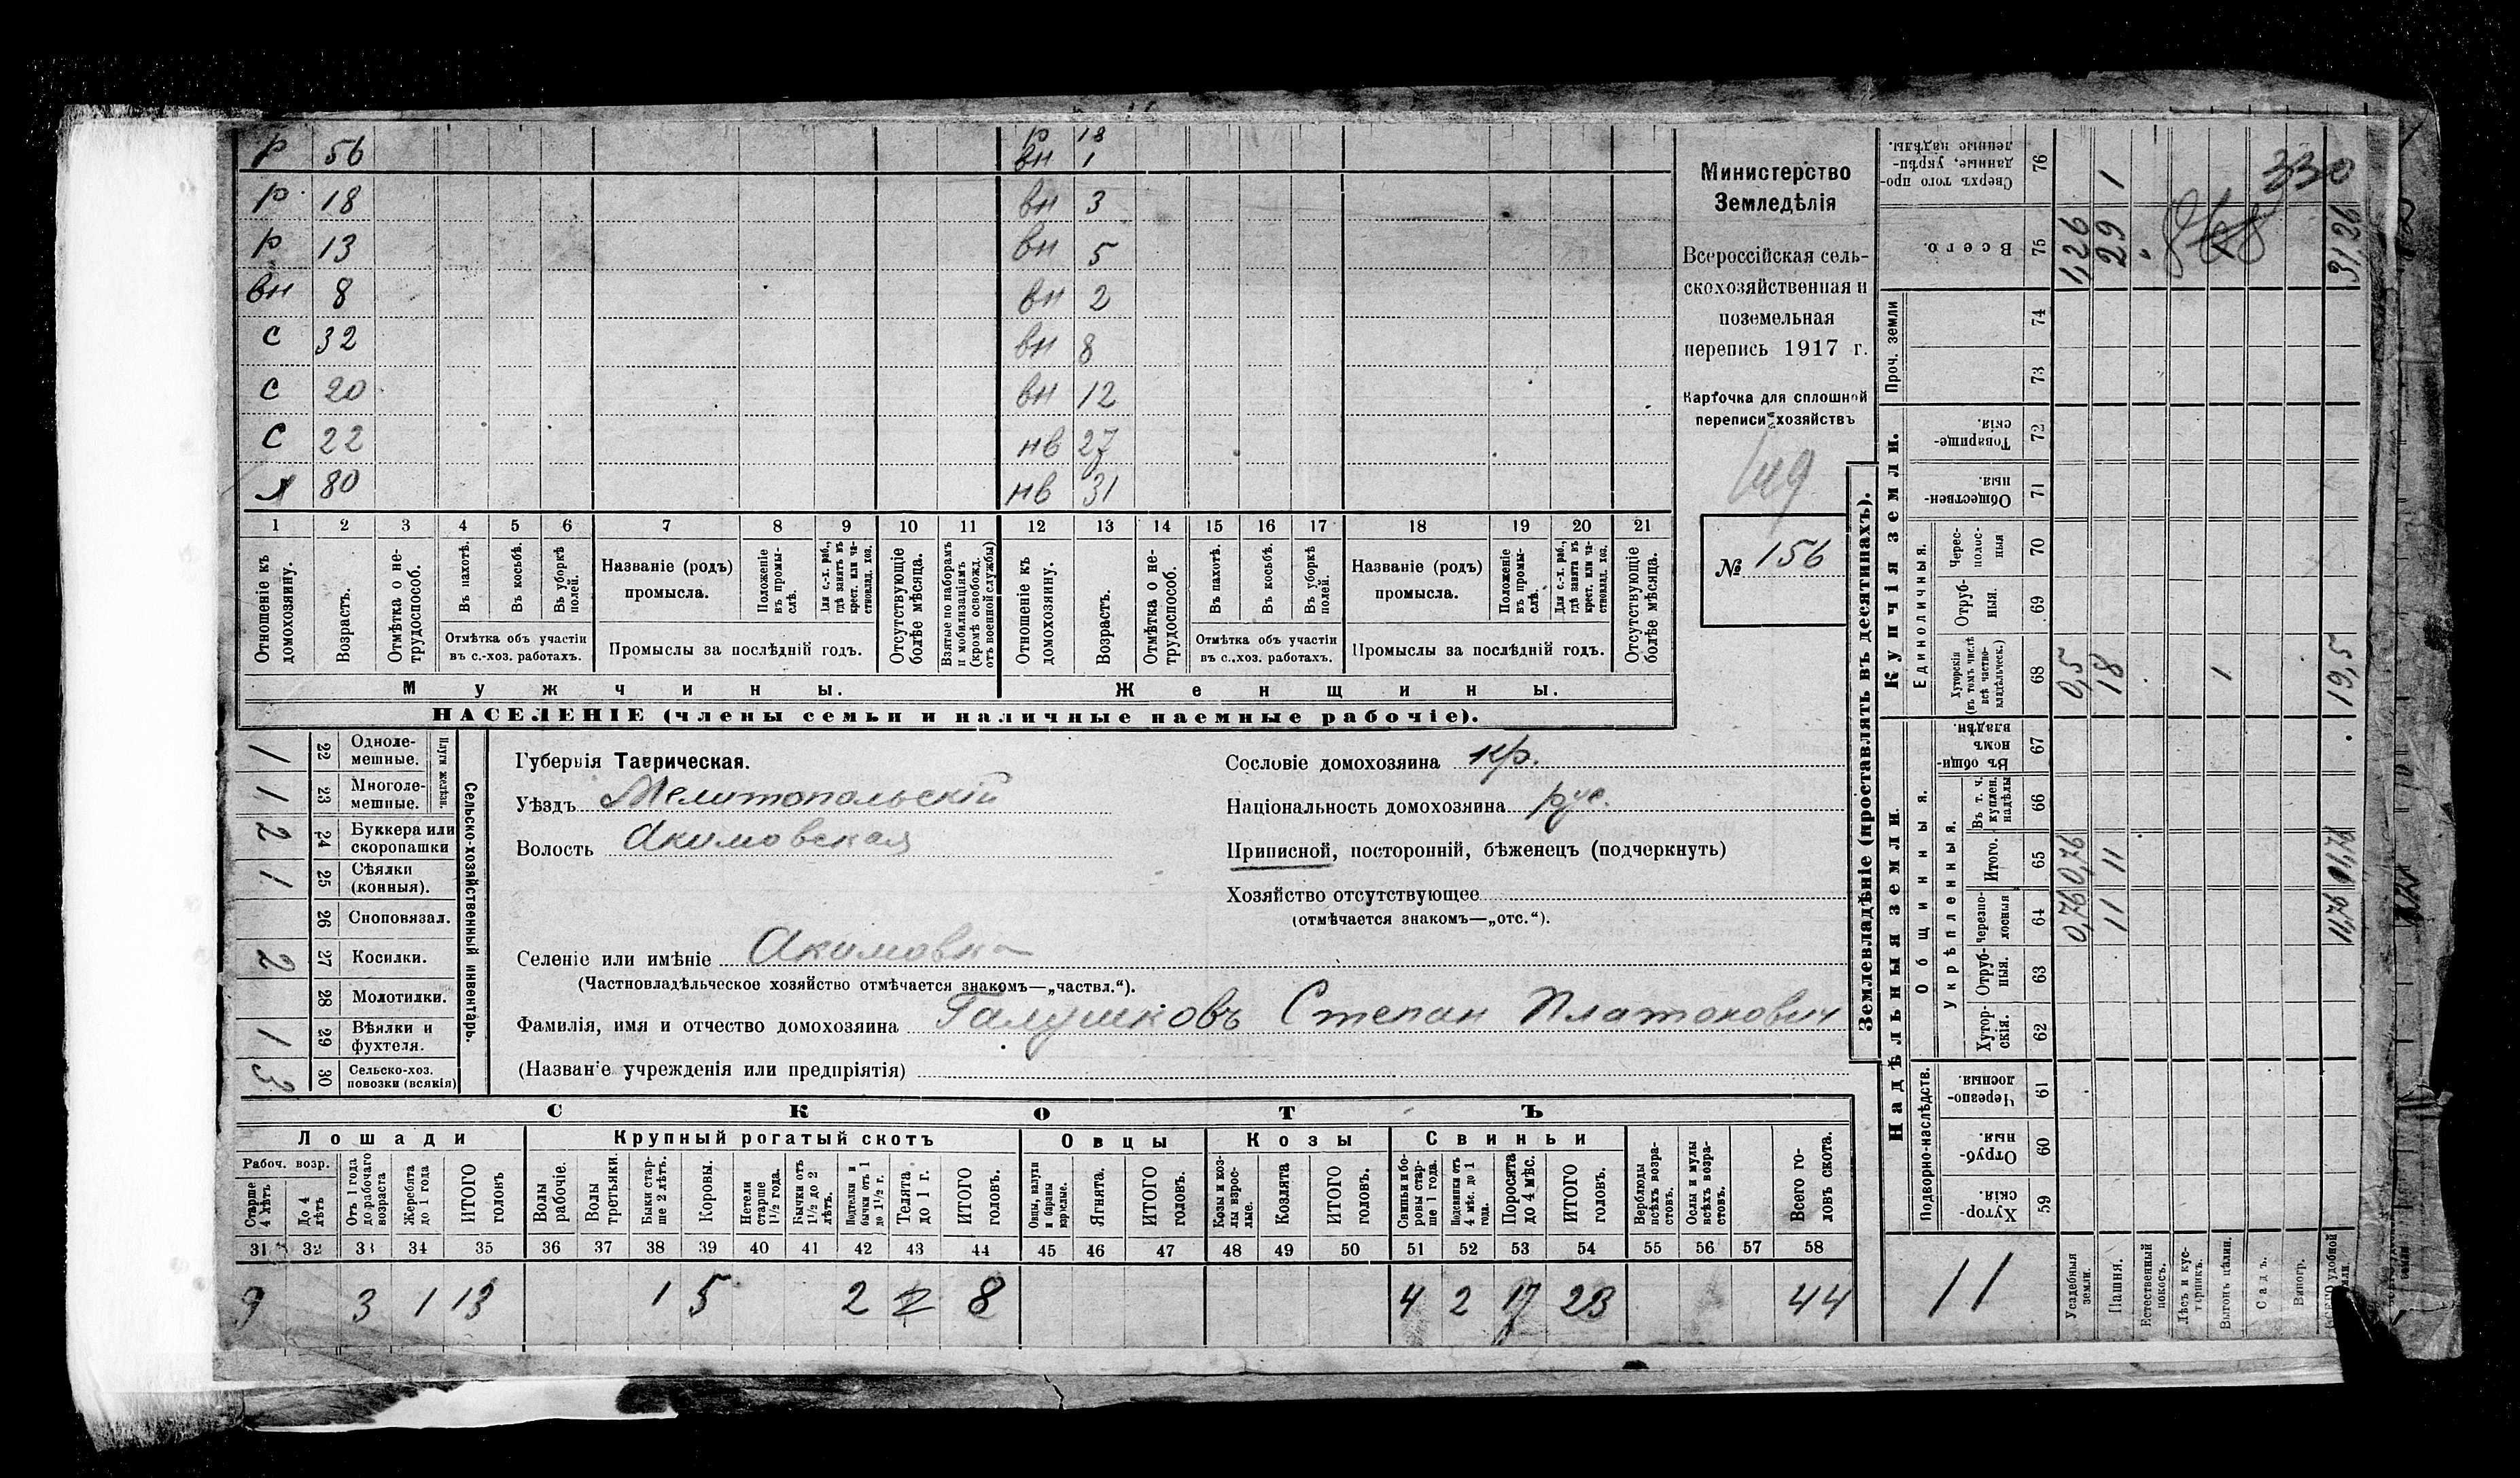 р 56 р 18
вн 1
р 18 вн 3
р 13 вн 5
вн 8 вн 2
с 32 вн 8
с 20 вн 12
с 22 нв 27
80 нв 31
1 2 3 4 5 6 7 8 9 10 11 12 13 14 15 16 17 18 19 20 21
Отношеніе къ домохозяину.
Возрастъ.
Отмѣтка о нетрудоспособ.
Въ пахотѣ.
Въ косьбѣ.
Въ уборкѣ полей.
Отмѣтка объ участіи
въ с.-хоз. работахъ.
Названіе (родъ)
промысла.
Положеніе въ промыслѣ.
Для с.-х. раб., гдѣ занятъ въ крест. или частновлад. хоз.
Промыслы за послѣдній годъ.
Отсутствующіе болѣе мѣсяца.
Взятые по наборамъ и мобилизаціямъ (кромѣ освобожд. отъ военной службы)
Отношеніе къ домохозяину.
Возрастъ.
Отмѣтка о нетрудоспособ.
Въ пахотѣ.
Въ косьбѣ.
Въ уборкѣ полей.
Отмѣтка объ участіи
въ с.-хоз. работахъ.
Названіе (родъ)
промысла.
Положеніе въ промыслѣ.
Для с.-х. раб., гдѣ занята въ крест. или частновлад. хоз.
Промыслы за послѣдній годъ.
Отсутствующіе болѣе мѣсяца.
Мужчины. Женщины.
НАСЕЛЕНІЕ (члены семьи и наличные наемные рабочіе).
Министерство
Земледѣлія
Всероссійская сель-
скохозяйственная и
поземельная
перепись 1917 г.
Карточка для сплошной
переписи хозяйствъ
№ 156
1 22 Одноле-
мешные.
1 23 Многоле-
мешные.
Плуги желѣзн.
2 24 Буккера или
скоропашки
1 25 Сѣялки
(конныя).
26 Сноповязал.
2 27 Косилки.
28 Молотилки.
1 29 Вѣялки и
фухтеля.
3 30 Сельско-хоз.
повозки (всякія)
Сельско-хозяйственный инвентарь.
Губернія Таврическая.
Уѣздъ Мелитопольскій
Волость Акимовская
Сословіе домохозяина кр.
Національность домохозяина рус.
Приписной, посторонній, бѣженецъ (подчеркнуть)
Хозяйство отсутствующее
(отмѣчается знакомъ—„отс.“).
Селеніе или имѣніе Акимовка
(Частновладѣльческое хозяйство отмѣчается знакомъ—„частвл.“).
Фамилія, имя и отчество домохозяина Галушковъ Степан Платонович
(Названіе учрежденія или предпріятія)
СКОТЪ
Лошади Крупный рогатый скотъ Овцы Козы Свиньи
Рабоч. возр.
Старше 4 лѣтъ
До 4 лѣтъ
Отъ 1 года до рабочаго возраста
Жеребята до 1 года
ИТОГО головъ
Волы рабочіе.
Волы третьяки.
Быки старше 2 лѣтъ.
Коровы.
Нетели старше 1 1/2 года.
Бычки отъ 1 1/2 до 2 лѣтъ.
Подтелки и бычки отъ 1 до 1 1/2 г.
Телята до 1 г.
ИТОГО головъ.
Овцы, валухи и бараны взрослые.
Ягнята.
ИТОГО головъ.
Козы и козлы взрослые.
Козлята
ИТОГО головъ.
Свиньи и боровы старше 1 года.
Подсвинки отъ 4 мѣс. до 1 года.
Поросята до 4 мѣс.
ИТОГО головъ.
Верблюды всѣхъ возрастовъ.
Ослы и мулы всѣхъ возрастовъ.
Всего головъ скота.
31 32 33 34 35 36 37 38 39 40 41 42 43 44 45 46 47 48 49 50 51 52 53 54 55 56 57 58
9 3 1 13 1 5 2 2 8 4 2 17 23 44
Землевладѣніе (проставлять въ десятинахъ).
Надѣльныя земли. Купчія земли. Проч. земли
Подворно-наслѣдств.
Общинныя.
Укрѣпленныя.
Единоличныя.
Хуторскія. 59
Отрубныя. 60
Черезполосныя. 61
Хуторскія. 62
Отрубныя. 63
Черезполосныя 64
Итого. 65
Въ т. ч. куплен. надѣлы 66
Въ общинномъ владѣн. 67
Хуторскія (въ томъ числѣ всѣ частновладѣльческ.) 68
Отрубныя. 69
Чересполосныя 70
Общественныя. 71
Товарищескія. 72
73
74
Всего. 75
Сверхъ того проданные, укрѣпленные надѣлы. 76
11
Усадебныя земли. 0,76 0,76 0,5 1,26
Пашня. 11 11 18 29 1
Естественный покосъ.
Лѣсъ и кустарникъ.
Выгонъ цѣлин. 1
Садъ.
Виногр.
удобной 11,76 11,76 19,5 31,26
330